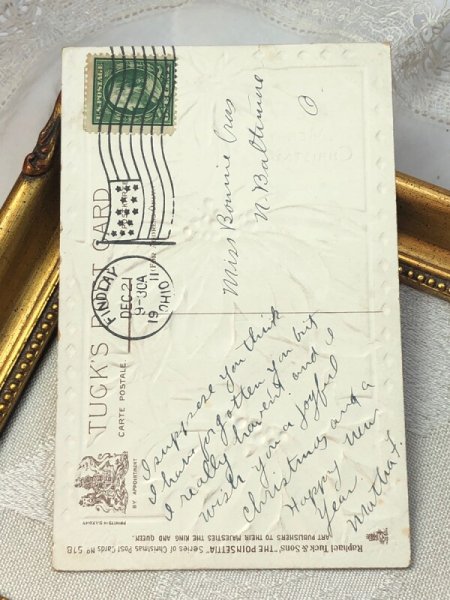 TUCK'S POST CARD
CARTE POSTALE
BY APPOINTMENT
U.S. POSTAGE
FINDLAY
DEC 21
9-30A
1911
OHIO
Miss Bonnie Cras
N. Baltimore
O.
I suppose you think
I have forgotten you but
I really haven't and I
wish you a Joyful
Christmas and a
Happy New
Year.
Martha L.
Raphael Tuck & Sons' "THE POINSETTIA" Series of Christmas Post Cards No 518
ART PUBLISHERS TO THEIR MAJESTIES THE KING AND QUEEN.
PRINTED IN SAXONY